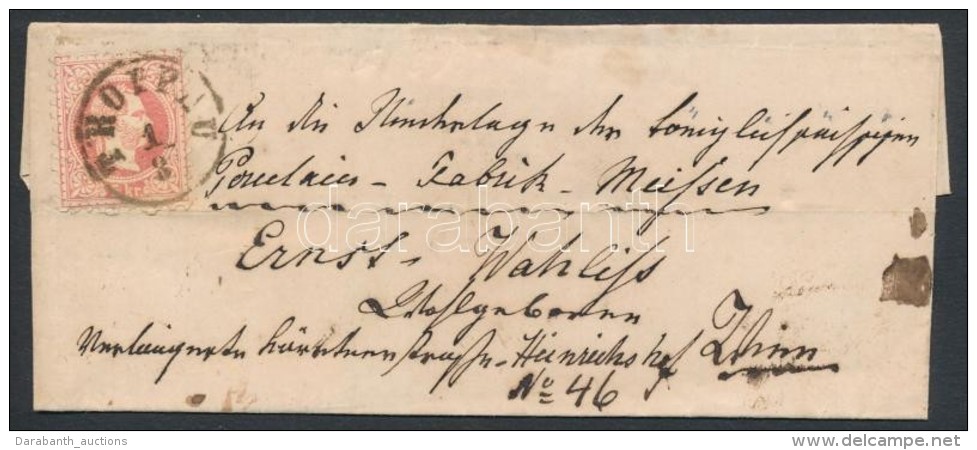 TROPPAU
1/3
An die Niederlage der königlich sächsischen
Porcelain - Fabrik - Meissen
darabanth
Ernst - Wahliss
Wohlgeboren
Verlängerte Kärnthnerstrasse - Heinrichshof Wien
No 46
Darabanth_auctions
www.delcampe.net